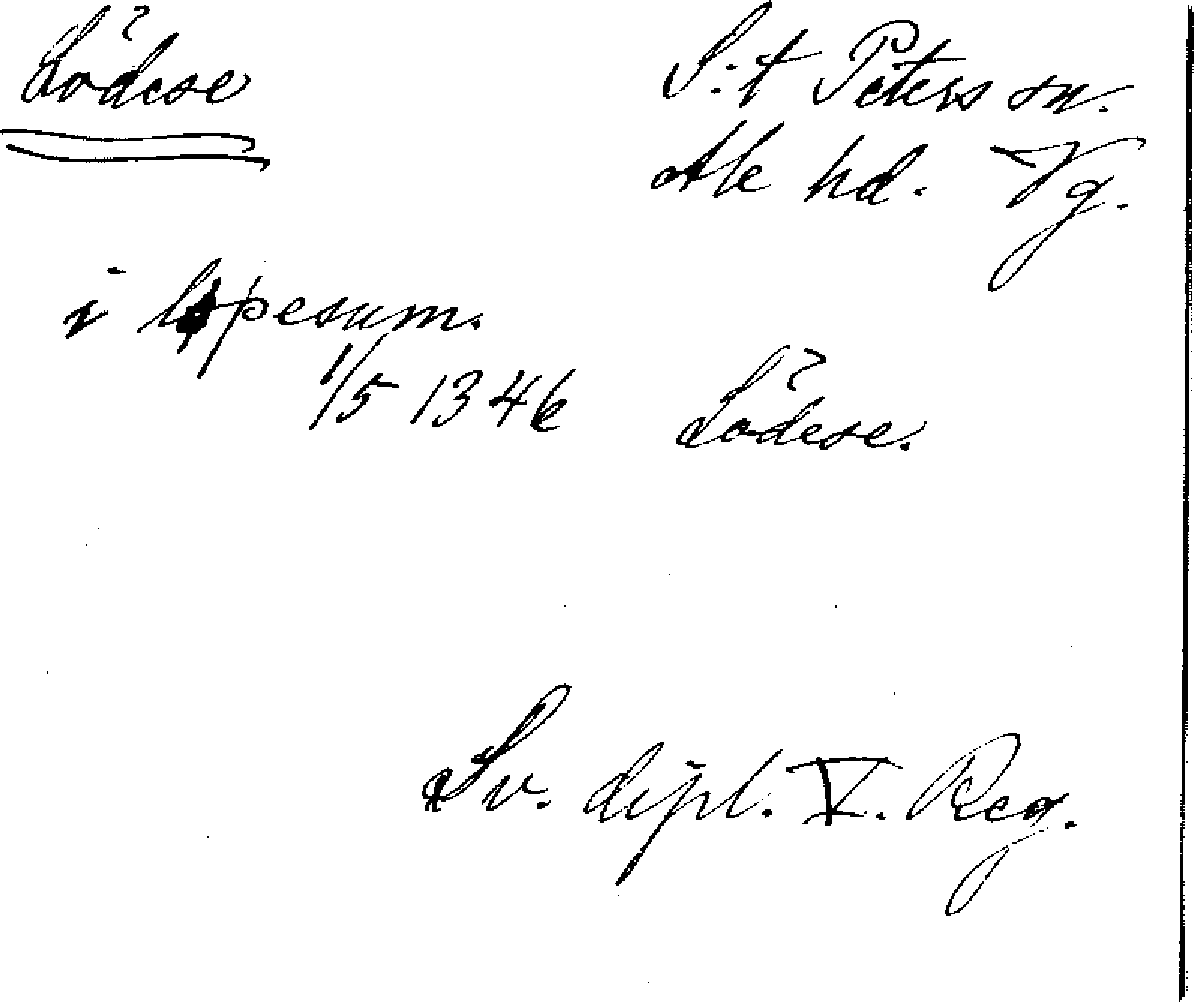 Lödese
S:t Peters sn.
Ale hd. Vg.
i
1/5 1346 Lödese.
Sv. dipl. V. Reg.